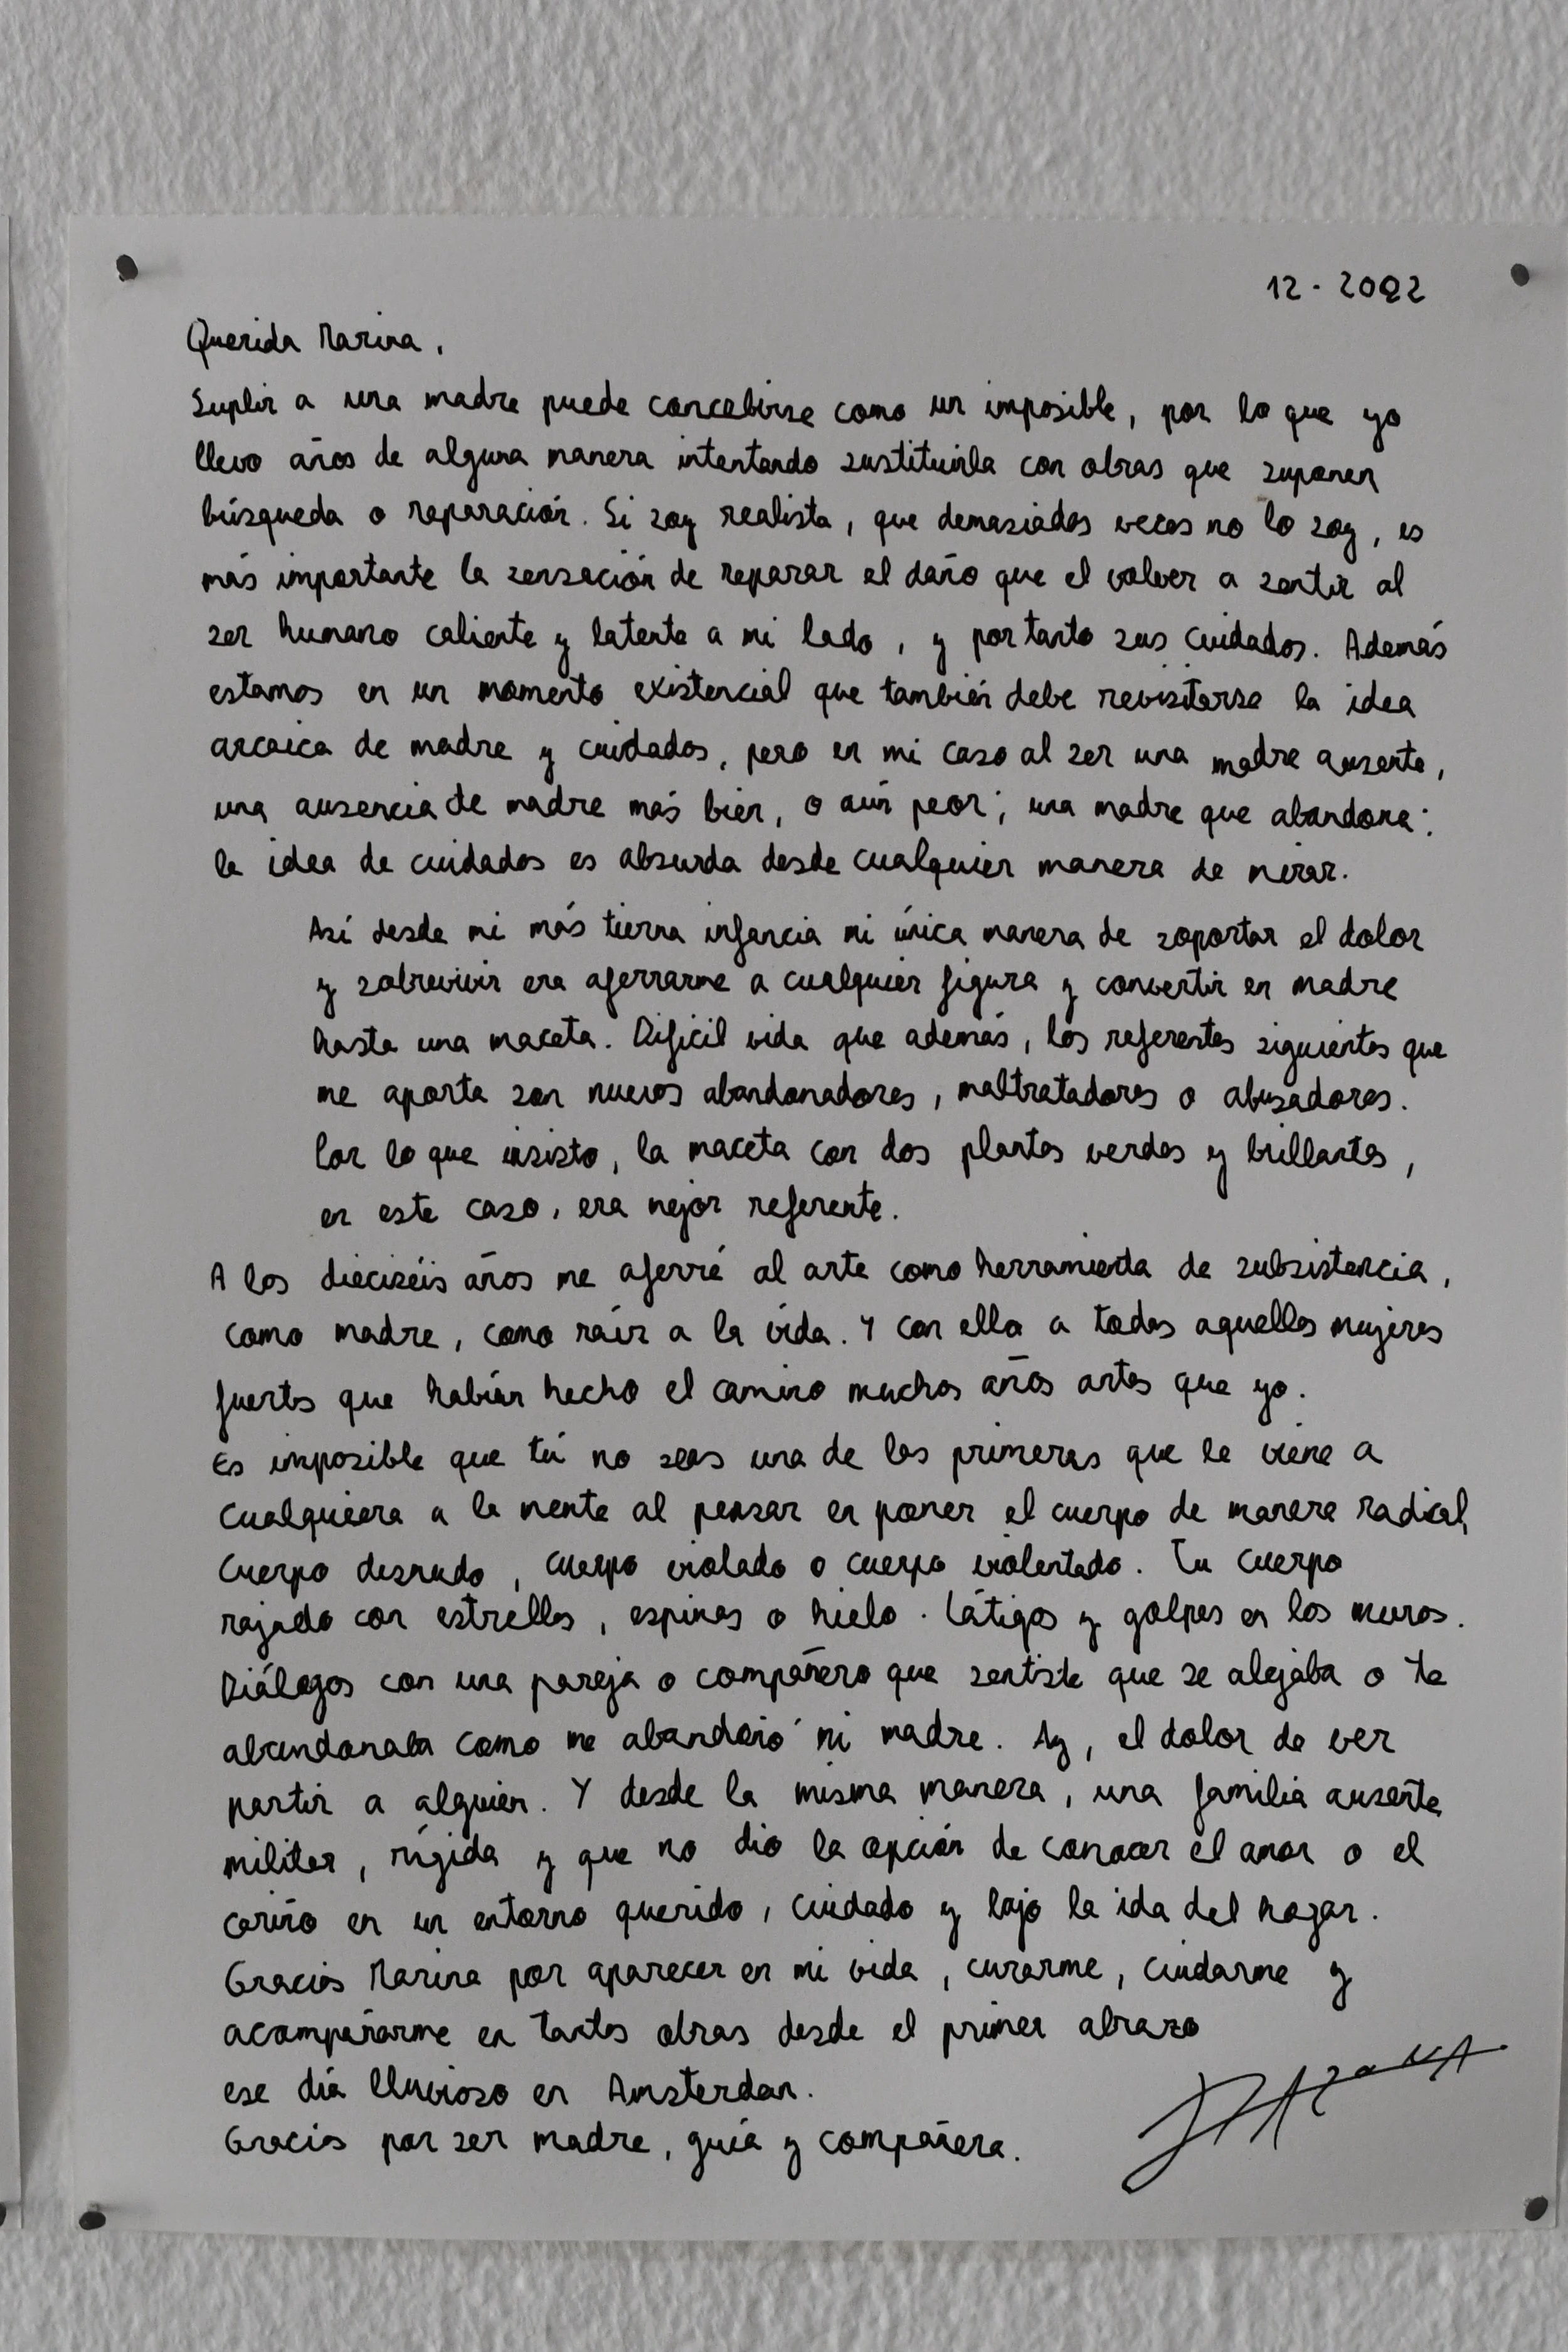 12 - 2022
Querida Marina,
Suplir a una madre puede concebirse como un imposible, por lo que yo
llevo años de alguna manera intentando sustituirla con obras que suponen
búsqueda o reparación. Si soy realista, que demasiadas veces no lo soy, es
más importante la sensación de reparar el daño que el volver a sentir al
ser humano caliente y latente a mi lado, y por tanto sus cuidados. Además
estamos en un momento existencial que también debe revisitarse la idea
arcaica de madre y cuidados, pero en mi caso al ser una madre ausente,
una ausencia de madre más bien, o aún peor; una madre que abandona:
la idea de cuidados es absurda desde cualquier manera de mirar.
Así desde mi más tierna infancia mi única manera de soportar el dolor
y sobrevivir era aferrarme a cualquier figura y convertir en madre
hasta una maceta. Difícil vida que además, los referentes siguientes que
me aporta son nuevos abandonadores, maltratadores o abusadores.
Por lo que insisto, la maceta con dos plantas verdes y brillantes,
en este caso, era mejor referente.
A los dieciséis años me aferré al arte como herramienta de subsistencia,
como madre, como raíz a la vida. Y con ella a todas aquellas mujeres
fuertes que habían hecho el camino muchos años antes que yo.
Es imposible que tú no seas una de las primeras que le viene a
cualquiera a la mente al pensar en poner el cuerpo de manera radical,
cuerpo desnudo, cuerpo violado o cuerpo violentado. Tu cuerpo
rajado con estrellas, espinas o hielo. Látigos y golpes en los muros.
Diálogos con una pareja o compañero que sentiste que se alejaba o te
abandonaba como me abandonó mi madre. Ay, el dolor de ver
partir a alguien. Y desde la misma manera, una familia ausente
militar, rígida y que no dio la opción de conocer el amor o el
cariño en un entorno querido, cuidado y bajo la ida del hogar.
Gracias Marina por aparecer en mi vida, curarme, cuidarme y
acompañarme en tantas obras desde el primer abrazo
ese día lluvioso en Amsterdam.
Gracias por ser madre, guía y compañera.